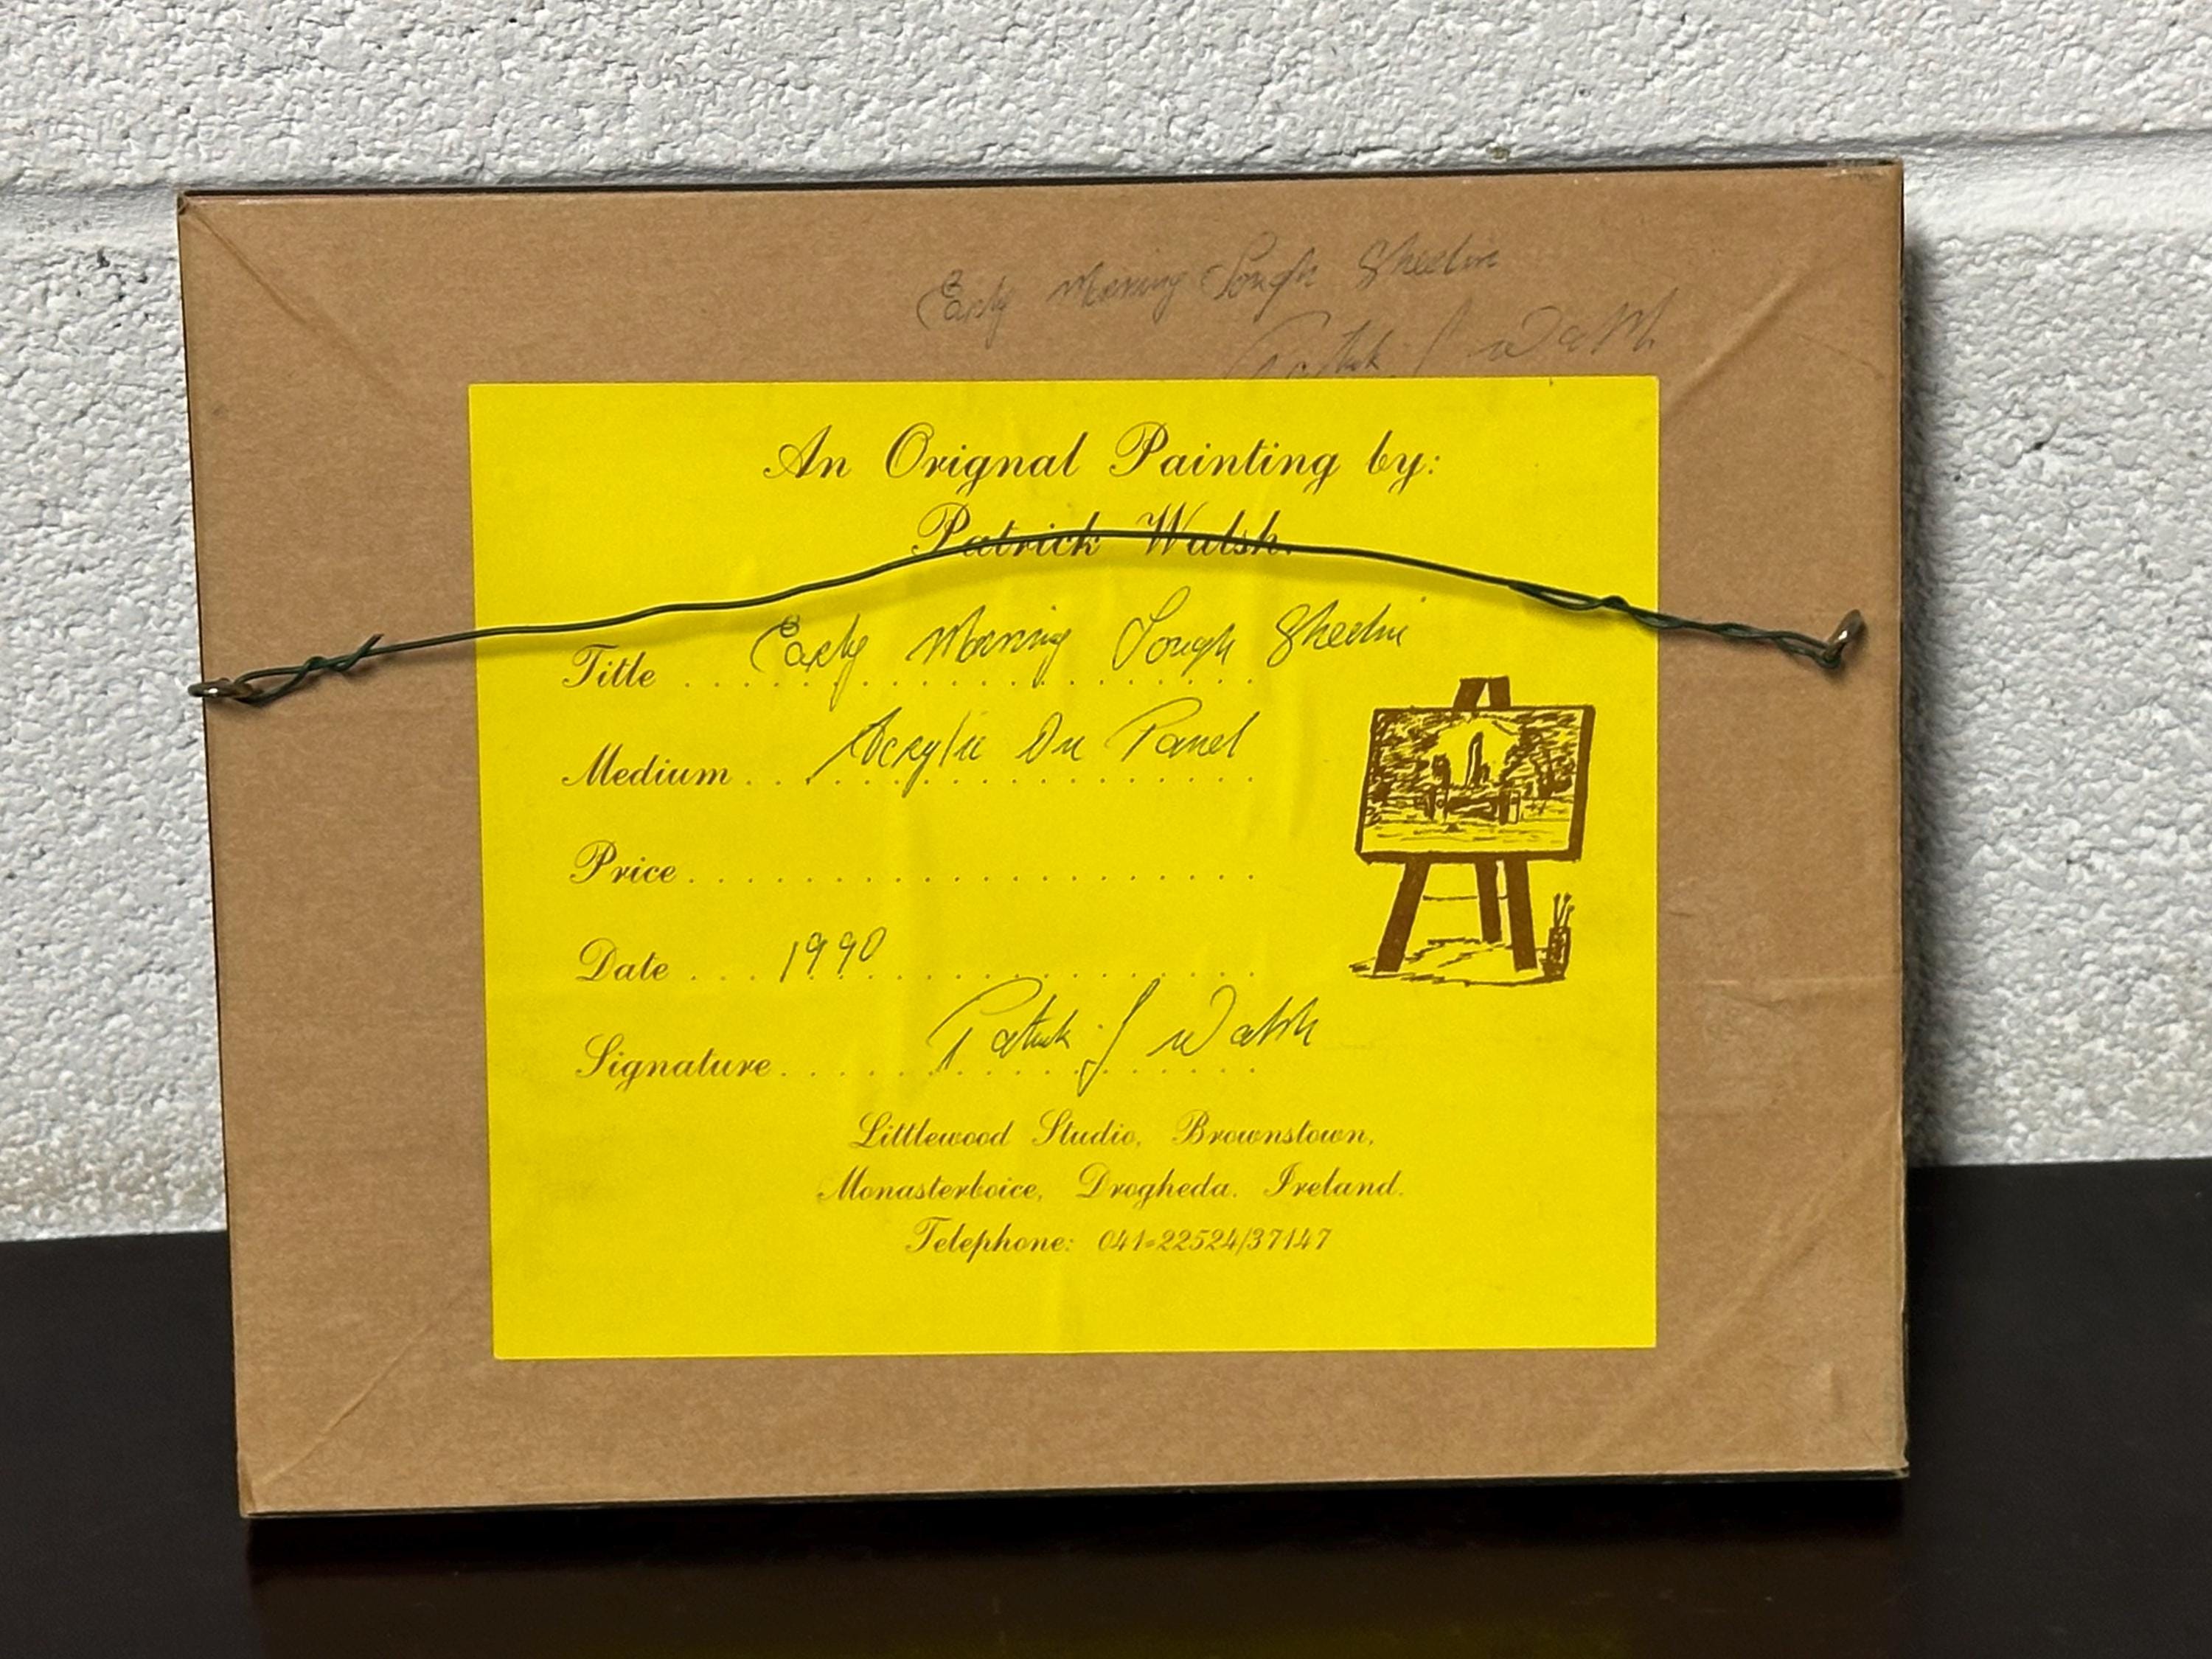 Early Morning Lough Sheelin
Patrick J Walsh
An Orignal Painting by:
Patrick Walsh.
Title . . . . . . . . . . . . . . . . . . . . Early Morning Lough Sheelin
Medium . . . . . . . . . . . . . . . . . . Acrylic On Panel
Price . . . . . . . . . . . . . . . . . . . .
Date . . . 1990 . . . . . . . . . . . . . . .
Signature . . . . . . . . . . . . . . . . . Patrick J Walsh
Littlewood Studio, Brownstown,
Monasterboice, Drogheda. Ireland.
Telephone: 041-22524/37147